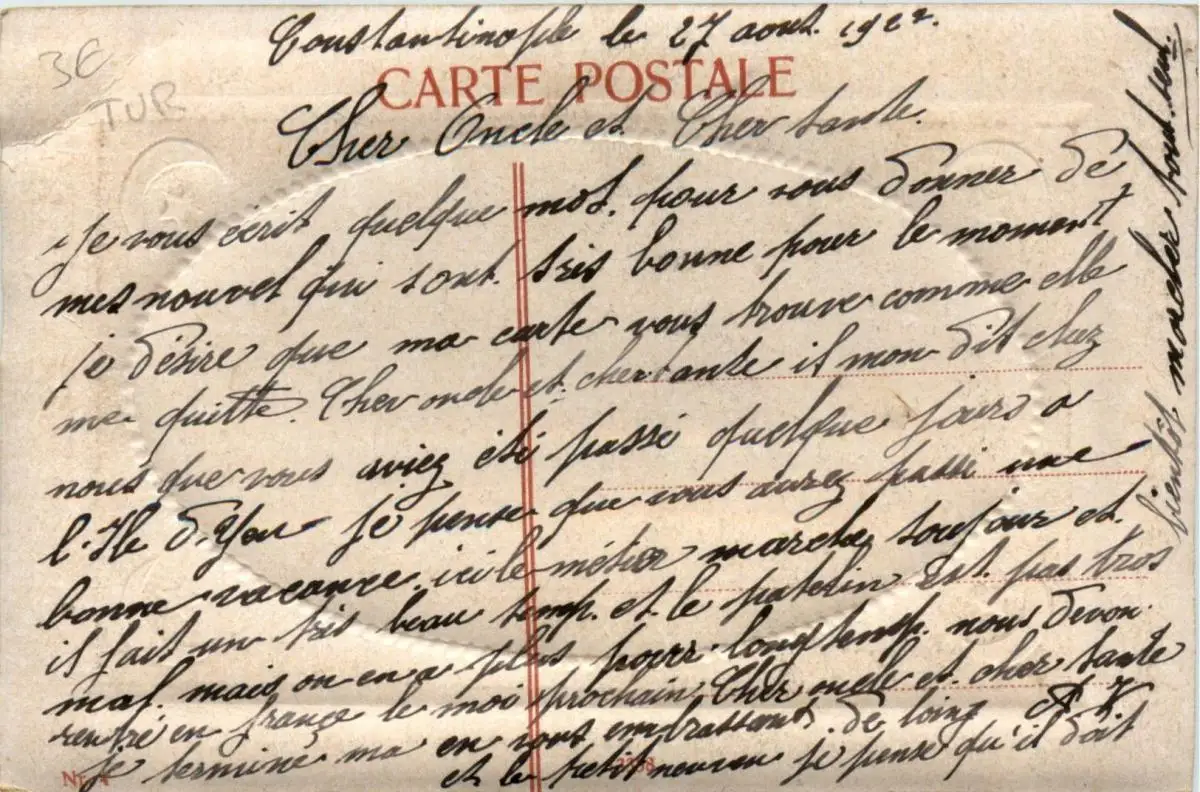 3E
TUR
Constantinople le 27 aout. 1922.
CARTE POSTALE
Cher Oncle et Cher tante.
Je vous écrit quelque mot. pour vous donner de
mes nouvel qui sont. trés bonne pour le moment
je désire que ma carte vous trouve comme elle
me quitte. Cher oncle et. cher tante il mon dit chez
nous que vous aviez été passé quelque jours a
l'Ile d'Yeu je pense que vous aurez passé une
bonne vacance. ici le métier marche toujour et.
il fait un trés beau temp. et. le patelin est. pas tros
mal. mais on en a plus pour longtemp. nous devon
rentré en france le moi prochain. Cher oncle et. cher tante
je termine ma en vous embrassant. de loing
et le petit neuveu je pense qu'il doit
bientôt marcher tout. seul.
Nr.